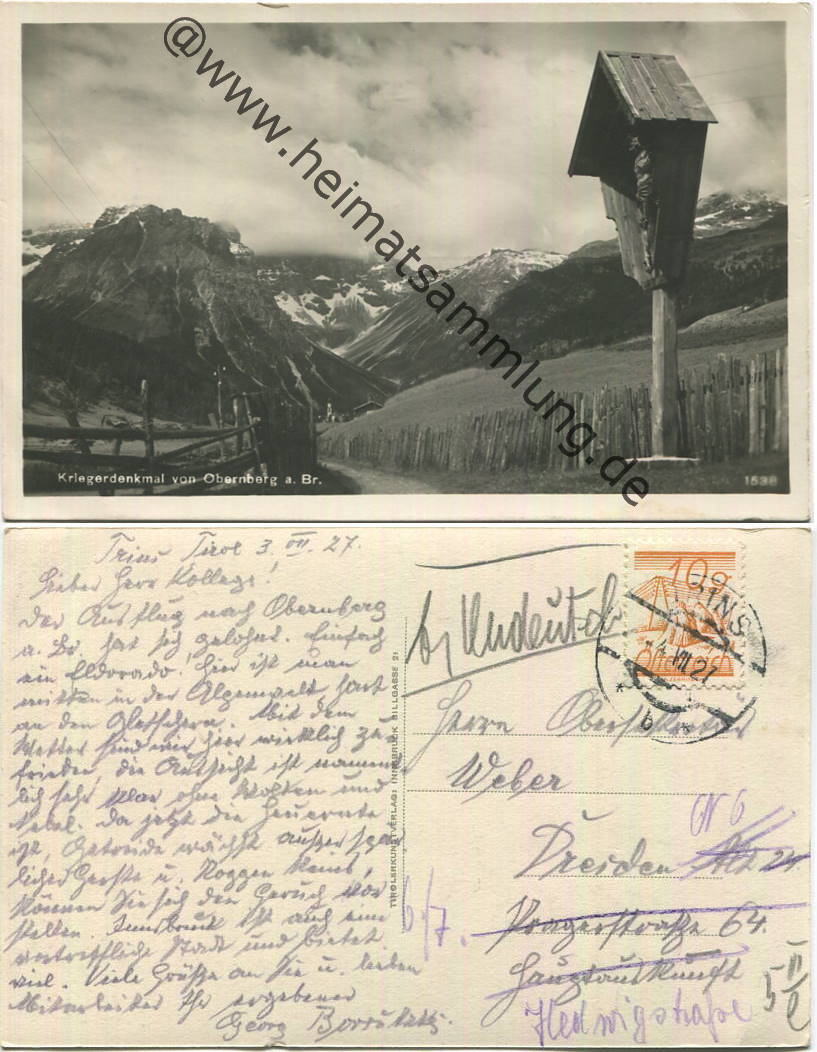 @www.heimatsammlung.de
Kriegerdenkmal von Obernberg a. Br.
1538
Trins Tirol 3. VII. 27.
Lieber Herr Kollege!
Der Ausflug nach Obernberg
a. Br. hat sich gelohnt. Einfach
ein Eldorado! Hier ist man
mitten in der Alpenwelt hart
an den Gletschern. Mit dem
Wetter sind wir hier wirklich zu-
frieden, die Aussicht ist nament-
lich sehr klar ohne Wolken und
Nebel. Da jetzt die Heuernte
ist, Getreide wächst außer spär-
licher Gerste u. Roggen keins,
können Sie sich den Geruch vor-
stellen. Innsbruck ist auch eine
vortreffliche Stadt und bietet
viel. Viele Grüße an Sie u. lieben
Mitarbeiter Ihr ergebener
Georg
TIROLERKUNSTVERLAG: INNSBRUCK SILLGASSE 21
10g
Österreich
TRINS
VII 27
* b *
Herrn
Weber
Dresden Alt 24
N 6
Pragerstraße 64.
Hauptauskunft
6/7.
Hedwigstraße
5